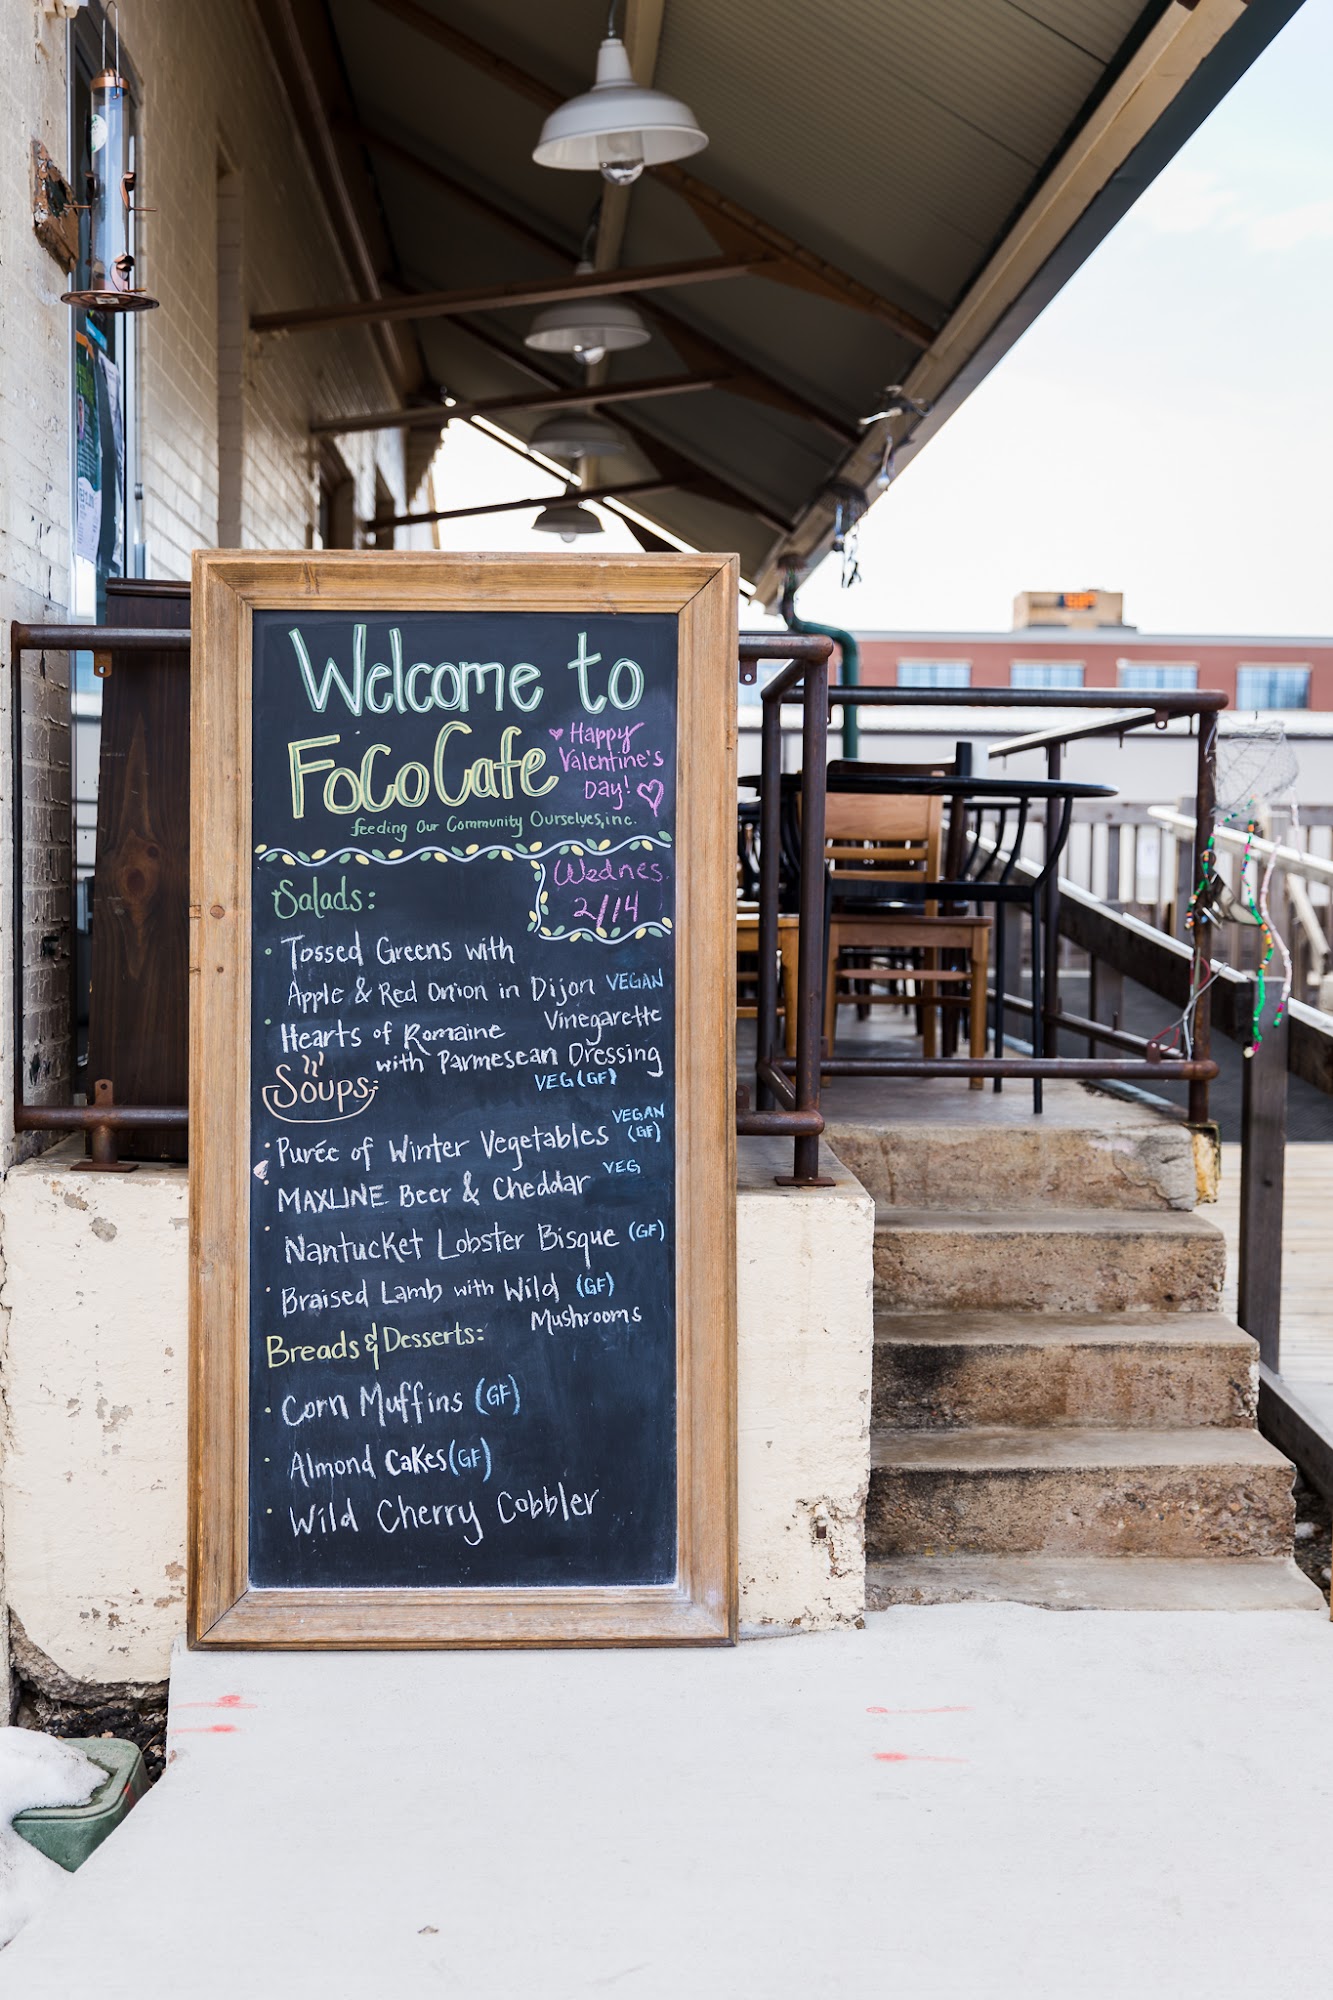 Welcome to
FoCo Cafe
♥ Happy
Valentine's
Day! ♡
feeding Our Community Ourselves, inc.
Wednes.
2/14
Salads:
• Tossed Greens with
Apple & Red Onion in Dijon VEGAN
Vinegarette
• Hearts of Romaine
with Parmesean Dressing
VEG (GF)
Soups:
• Purée of Winter Vegetables VEGAN (GF)
• MAXLINE Beer & Cheddar VEG
• Nantucket Lobster Bisque (GF)
• Braised Lamb with Wild (GF)
Mushrooms
Breads & Desserts:
• Corn Muffins (GF)
• Almond Cakes (GF)
• Wild Cherry Cobbler